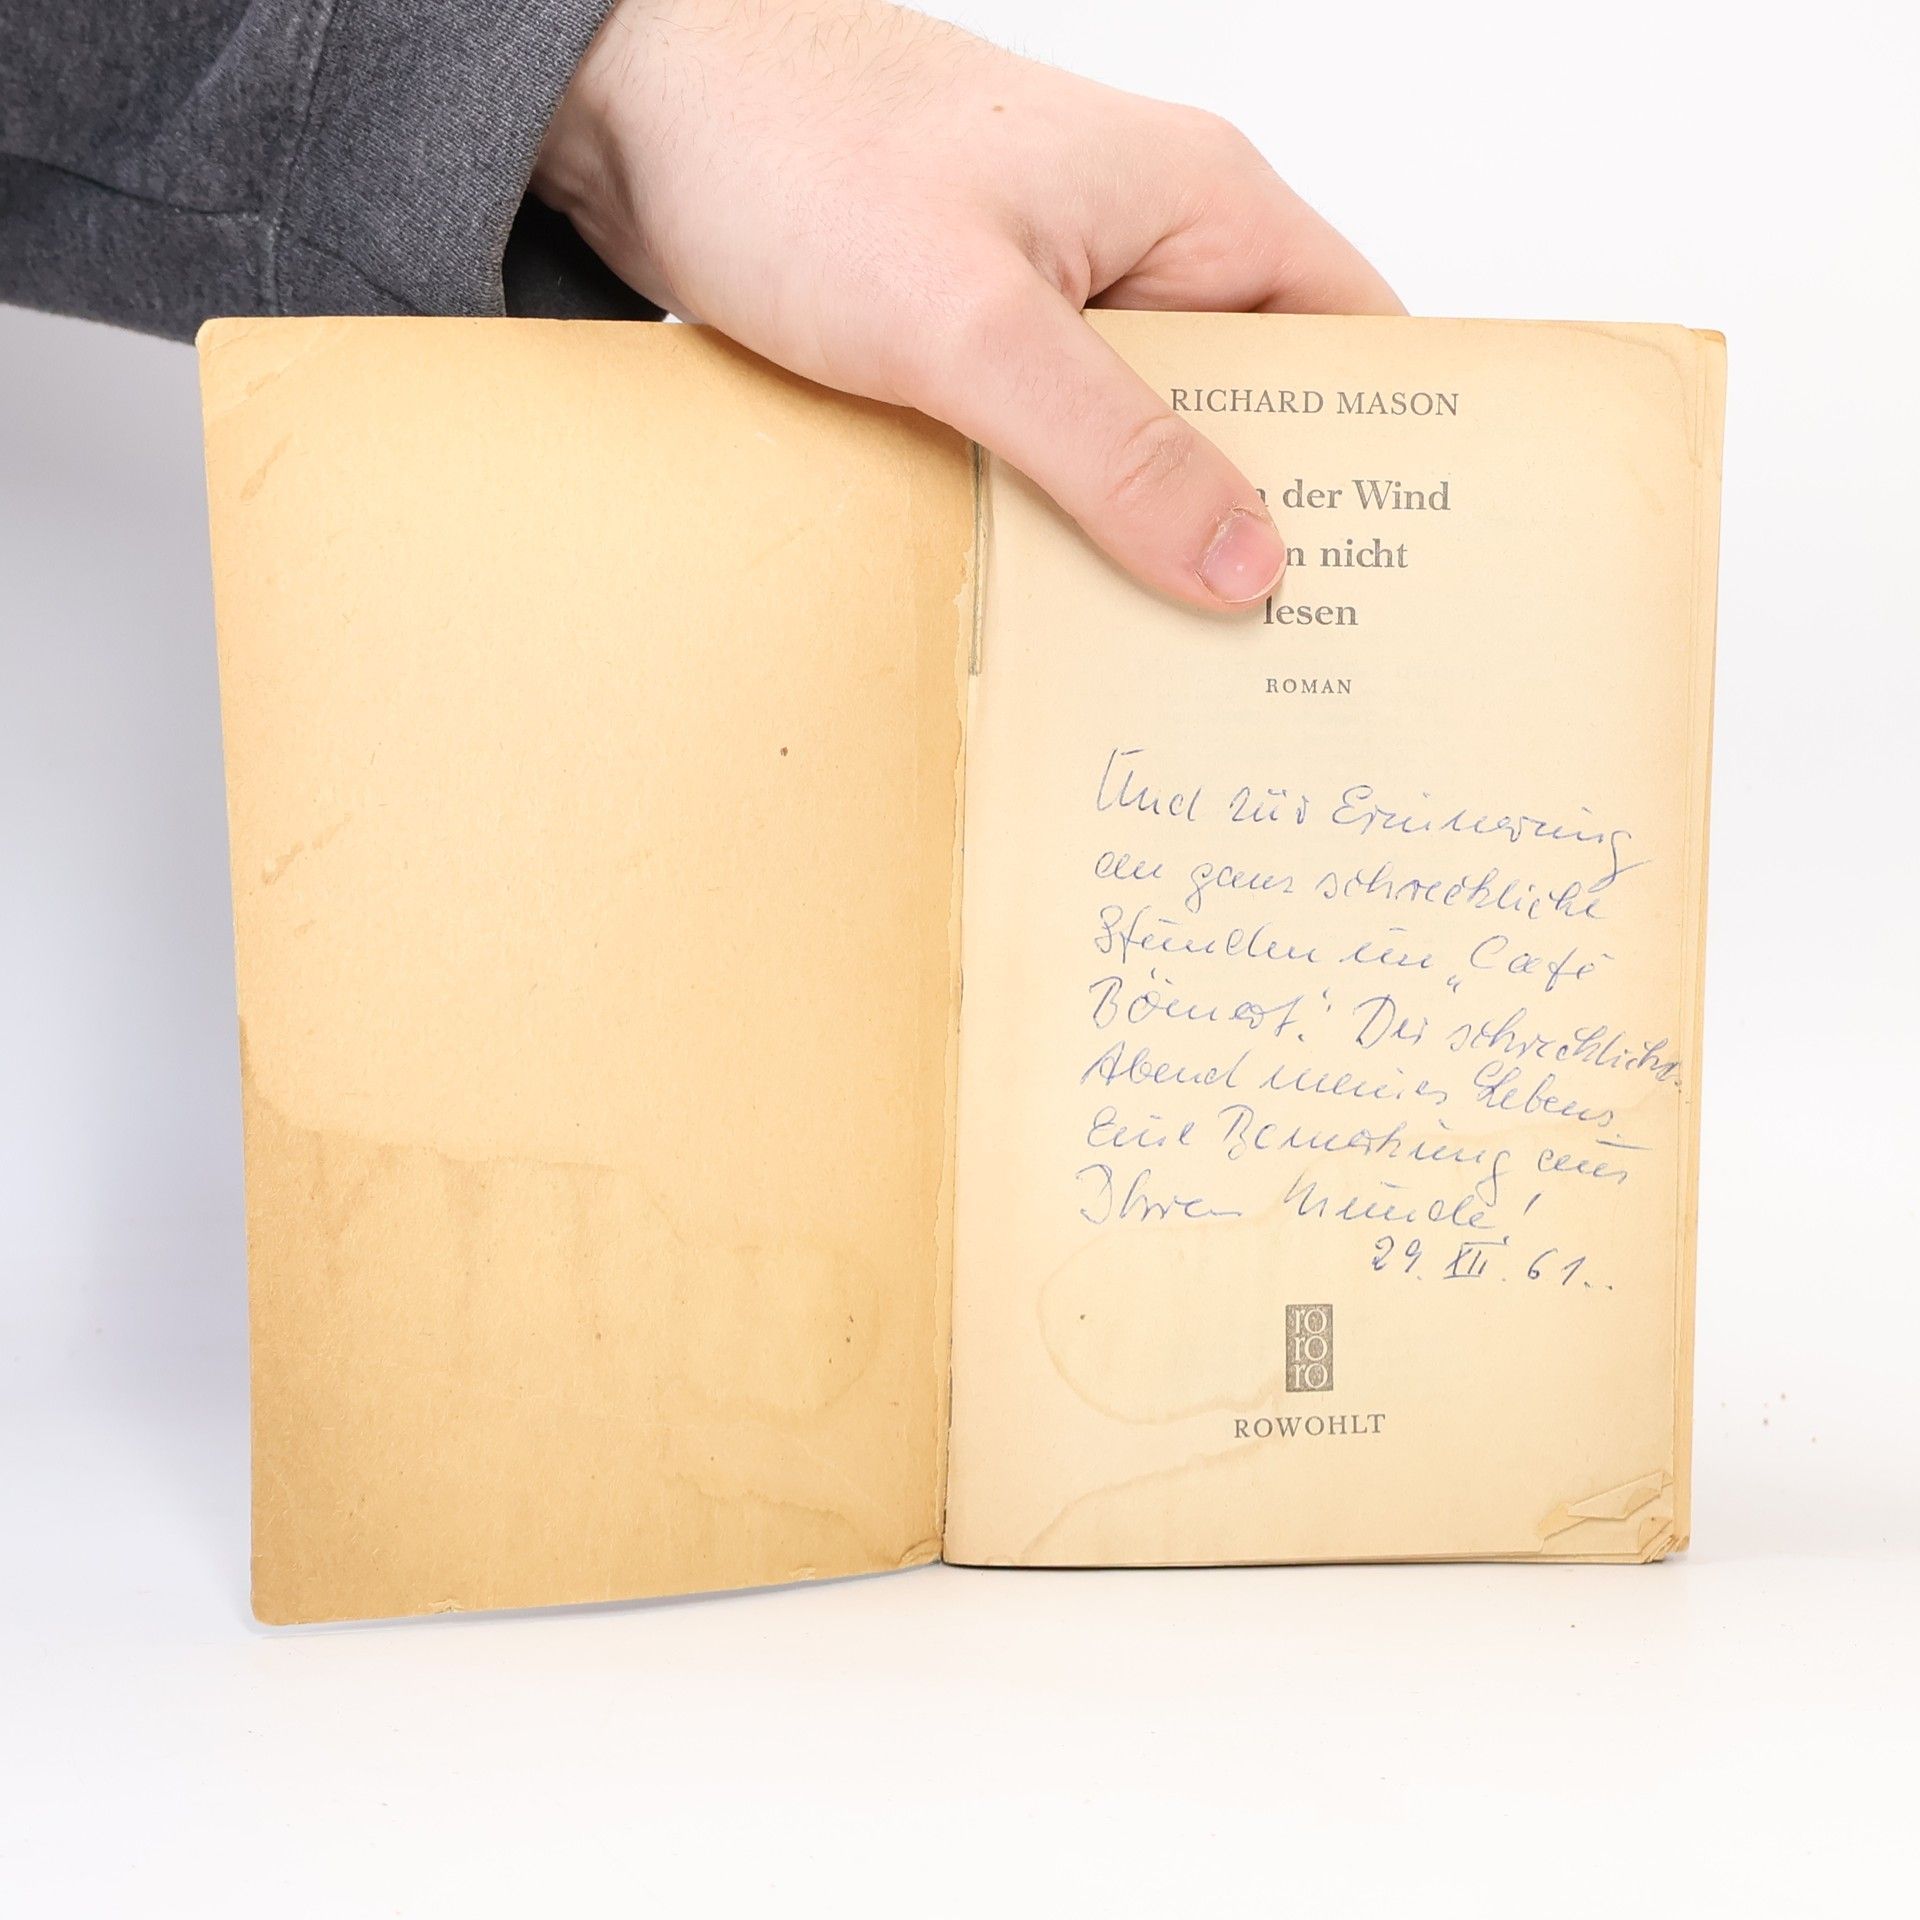 RICHARD MASON
der Wind
nicht
lesen
ROMAN
Und zur Erinnerung
an ganz schreckliche
Stunden im „Café
Bömert“. Der schrecklichste
Abend meines Lebens.
Eine Bemerkung aus
Ihrem Munde!
29. XII. 61.
ro
ro
ro
ROWOHLT